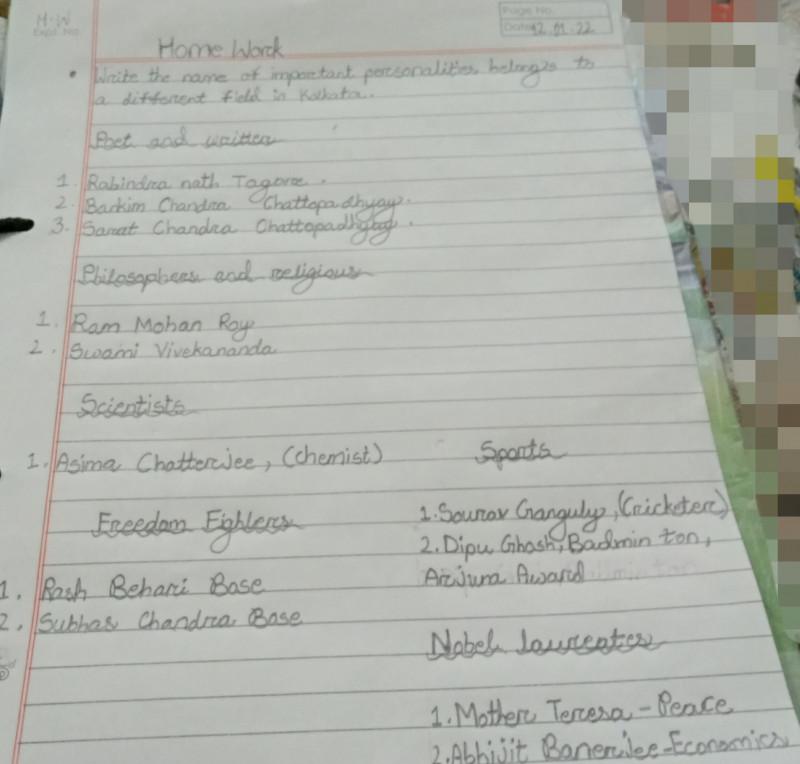 H.W
Expt. No.
Page No.
Date 12.01.22
Home Work
• Write the name of important personalities belongs to
a different field in Kolkata.
Poet and writter
1. Rabindra nath Tagore.
2. Bankim Chandra Chattopadhyay.
3. Sarat Chandra Chattopadhyay.
Philosophers and religious
1. Ram Mohan Roy
2. Swami Vivekananda
Scientists
1. Asima Chatterjee, (chemist)
Freedom Fighters
1. Rash Behari Bose
2. Subhas Chandra Bose
Sports
1. Sourav Ganguly, (Cricketer)
2. Dipu Ghosh, Badmin ton,
Arjuna Award
Nobel laureates
1. Mother Teresa - Peace
2. Abhijit Banerjee - Economics